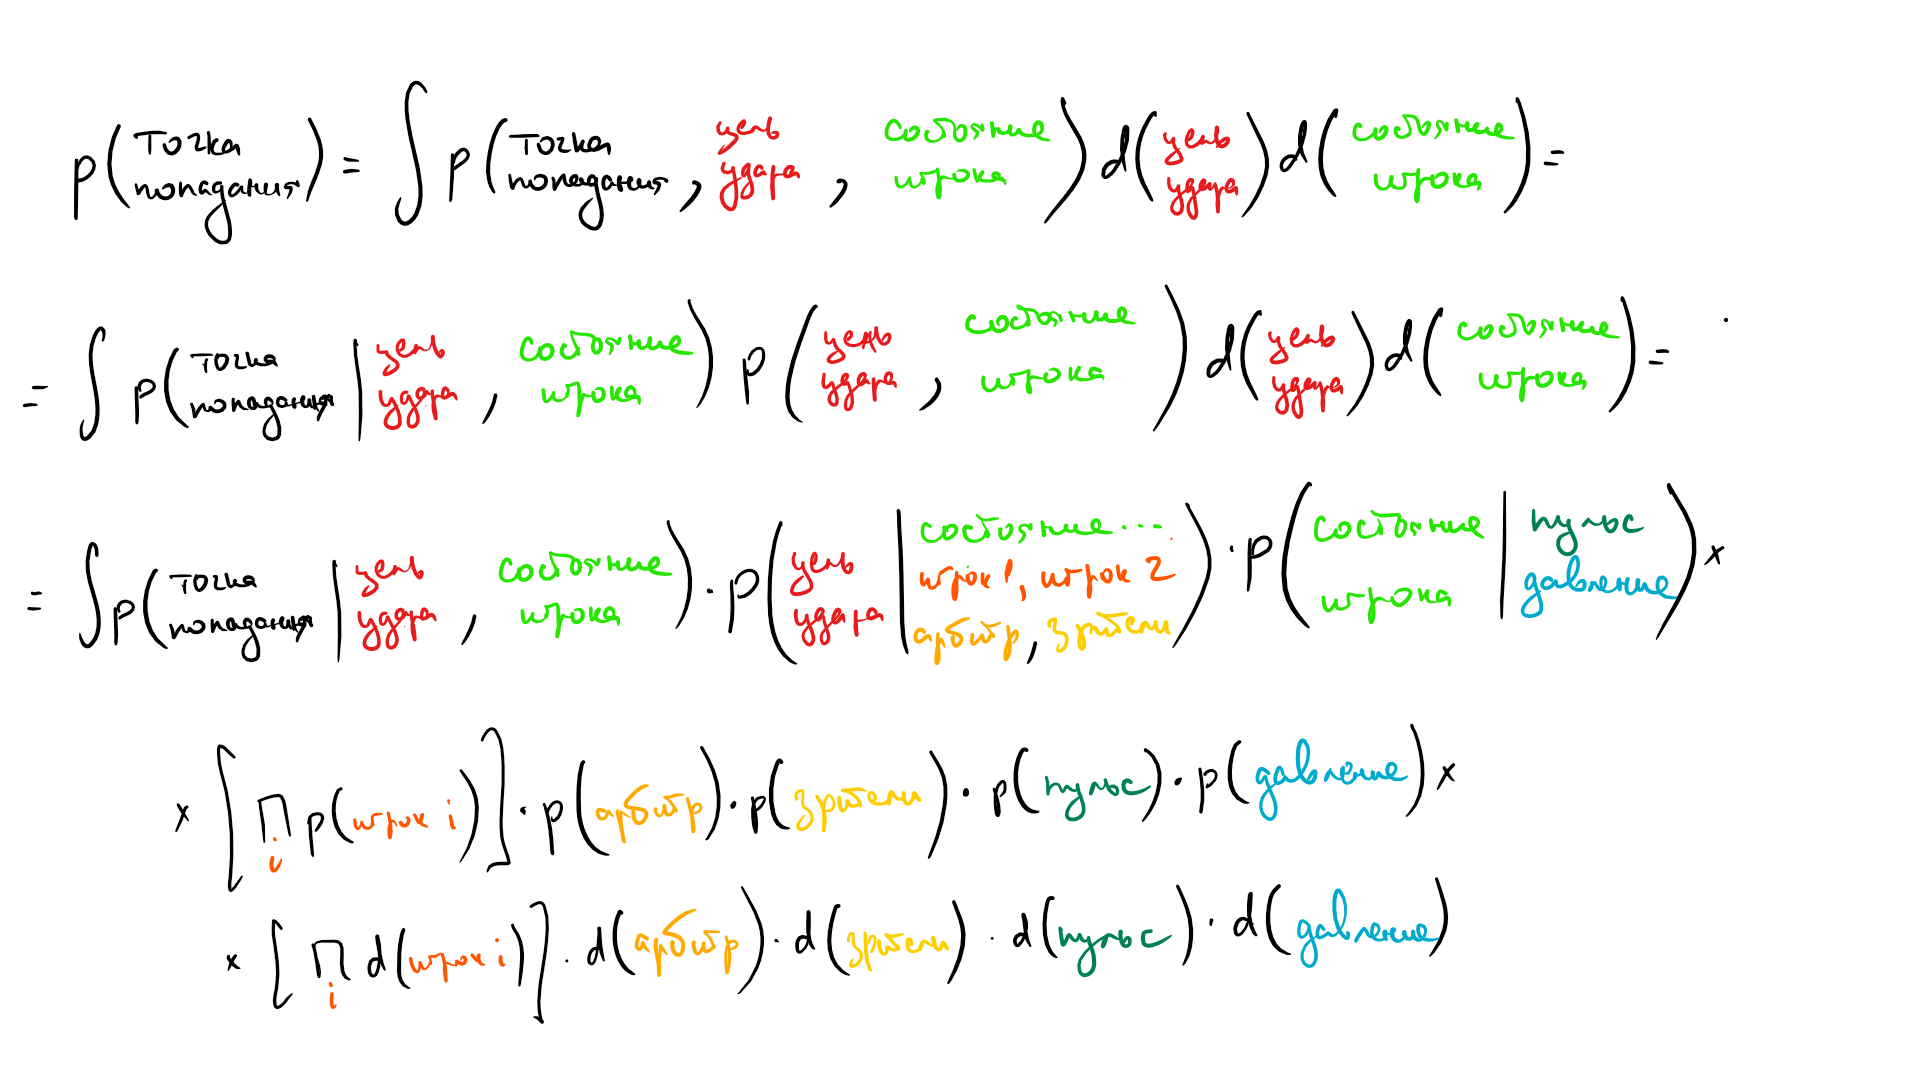 p(точка попадания) = ∫ p(точка попадания, цель удара, состояние игрока) d(цель удара) d(состояние игрока) =
= ∫ p(точка попадания | цель удара, состояние игрока) p(цель удара, состояние игрока) d(цель удара) d(состояние игрока) =
= ∫ p(точка попадания | цель удара, состояние игрока) · p(цель удара | состояние... игрок 1, игрок 2 арбитр, зрители) · p(состояние игрока | пульс давление) ×
× [∏ i p(игрок i)] · p(арбитр) · p(зрители) · p(пульс) · p(давление) ×
× [∏ i d(игрок i)] · d(арбитр) · d(зрители) · d(пульс) · d(давление)